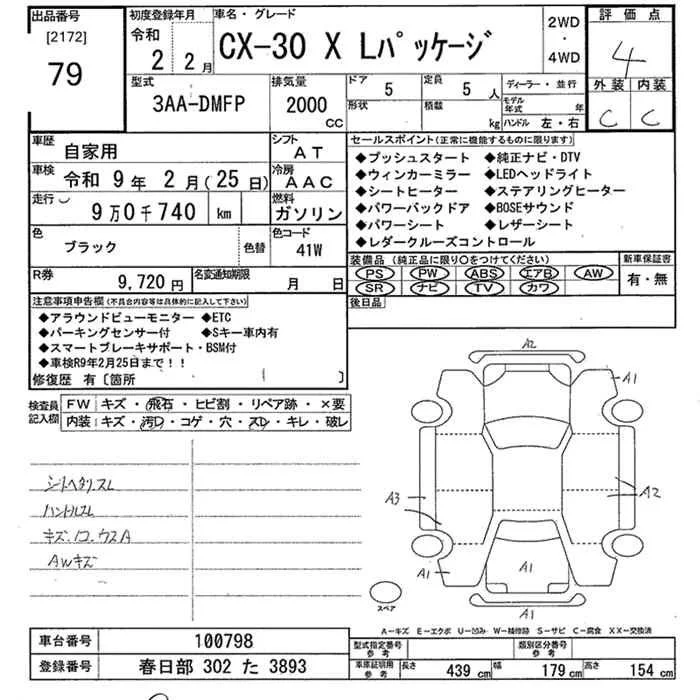 出品番号
[2172]
79
初度登録年月
令和
2 2 月
車名・グレード
CX-30 X Lパッケージ
2WD
・
4WD
評価点
4
外装 内装
C C
型式
3AA-DMFP
排気量
2000
CC
ドア
5
形状
定員
5 人
積載
kg
ディーラー・並行
モデル年式 年
ハンドル 左・右
車歴
自家用
シフト
AT
車検
令和 9年 2月(25日)
冷房
AAC
走行
9万0千740 km
燃料
ガソリン
色
ブラック
色替
色コード
41W
R券
9,720 円
名変通知期限
月 日
セールスポイント(正常に機能するものに限ります)
◆プッシュスタート ◆純正ナビ・DTV
◆ウィンカーミラー ◆LEDヘッドライト
◆シートヒーター ◆ステアリングヒーター
◆パワーバックドア ◆BOSEサウンド
◆パワーシート ◆レザーシート
◆レダークルーズコントロール
装備品(純正品に限り○をつけてください)
PS PW ABS エアB AW
SR ナビ TV カワ
新車保証書
有・無
後日品
注意事項申告欄(不具合内容等は具体的に記入して下さい)
◆アラウンドビューモニター ◆ETC
◆パーキングセンサー付 ◆Sキー車内有
◆スマートブレーキサポート・BSM付
◆車検R9年2月25日まで!!
修復歴 有〔箇所 〕
検査員記入欄
FW キズ・飛石・ヒビ割・リペア跡・×要
内装:キズ・汚D・コゲ・穴・スD・キレ・破レ
シートヘタリスレ
ハンドルスレ
AWキズ
A2
A1
A3
A2
A1
A1
A1
スペア
A―キズ E―エクボ U―凹み W―補修跡 S―サビ C―腐食 XX―交換済
車台番号
100798
登録番号
春日部 302 た 3893
型式指定番号
参考
類別区分番号
参考
車庫証明用
参考
長さ 439 cm 幅 179 cm 高さ 154 cm